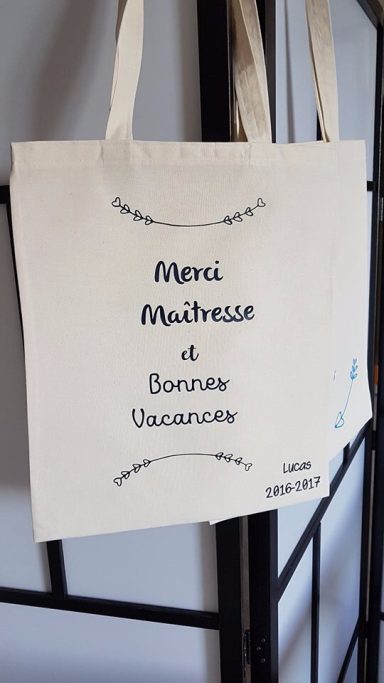 Merci
Maîtresse
et
Bonnes
Vacances
Lucas
2016-2017